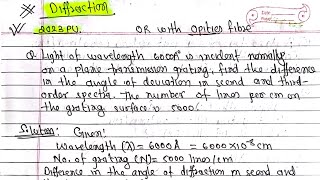 Diffraction
2023 PU. OR with Optics fibre
Q. Light of wavelength 6000A° is incident normally
on a plane transmission grating. find the difference
in the angle of deviation in second and third-
order spectra. The number of lines per cm on
the grating surface is 5000
Solution: Given:
Wavelength (λ) = 6000A = 6000×10⁻⁸cm
No. of grating (N) = 5000 lines/cm
Difference in the angle of diffraction in second and